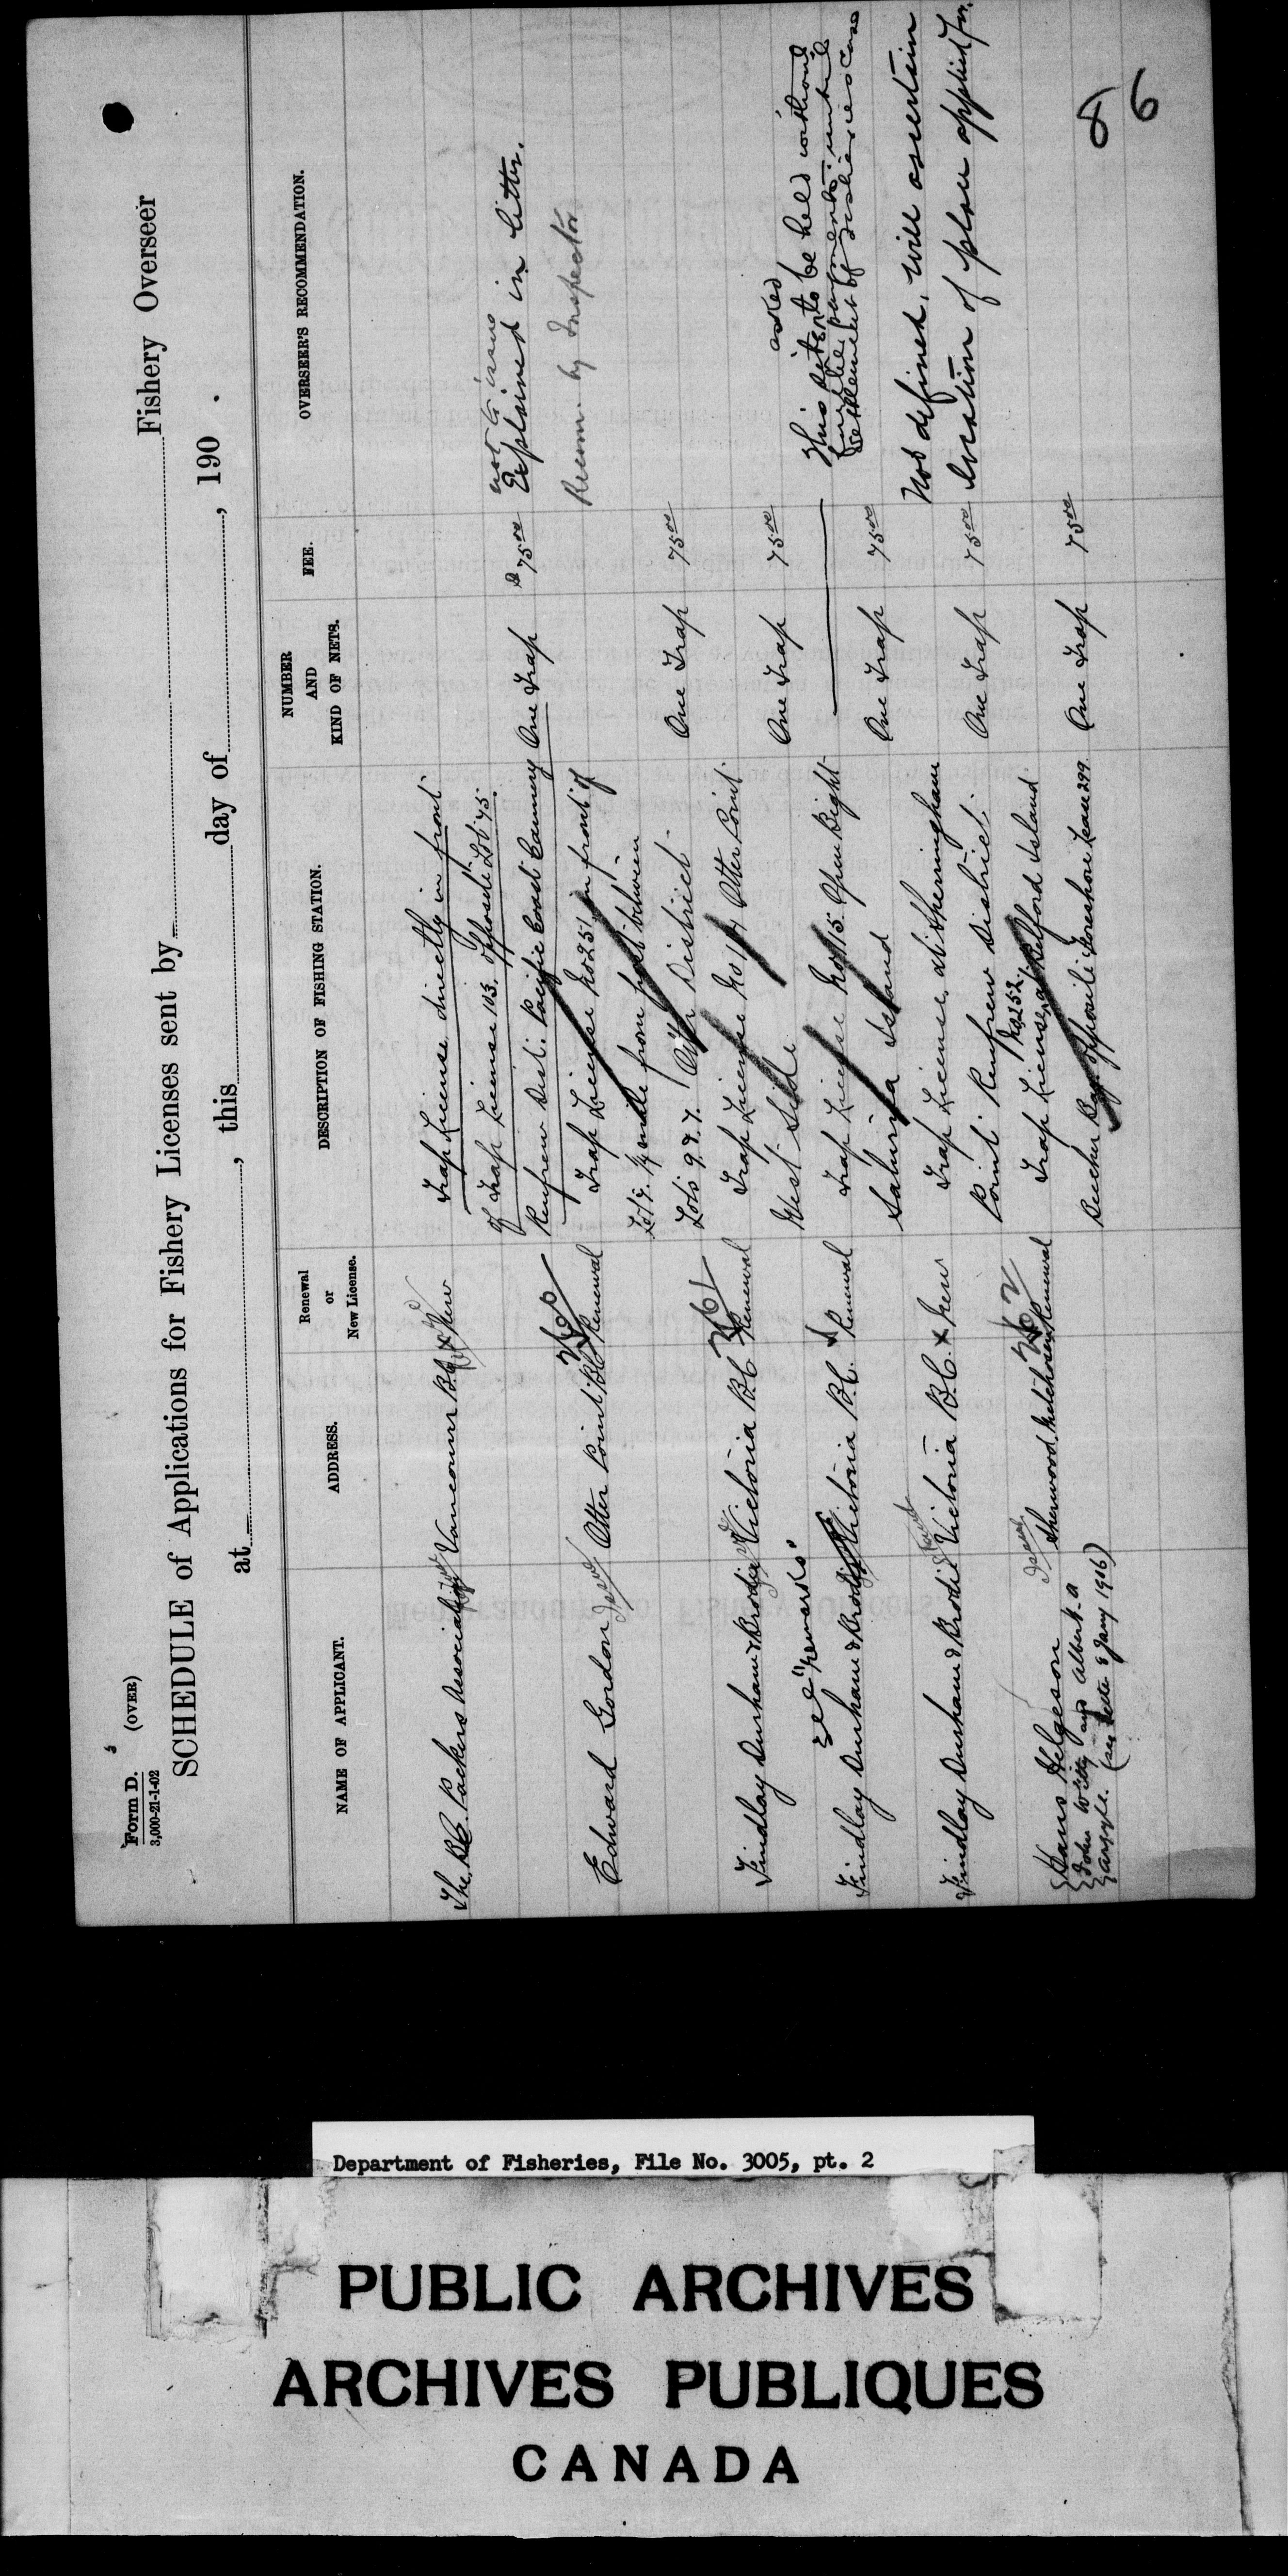 Form D. (OVER)
3,000-21-1-02
SCHEDULE of Applications for Fishery Licenses sent by Fishery Overseer
at , this day of , 190 .
NAME OF APPLICANT.
ADDRESS.
Renewal
or
New License.
DESCRIPTION OF FISHING STATION.
NUMBER
AND
KIND OF NETS.
FEE.
OVERSEER'S RECOMMENDATION.
The B.C. Packers Association
Vancouver B.C. x New
Trap License directly in front
of Trap License 103. opposite Lot 45.
Renfrew Dist. Pacific Coast Cannery
One Trap
$ 75 00
not to issue
Explained in letter.
Recom. by Inspector
Edward Gordon
Otter Point B.C.
Renewal
Trap License No 251 in front of
Lot 7. 1/4 mile from post between
Lots 9. & 7. Otter District
One Trap
75 00
Findlay Durham & Brodie
Victoria B.C.
Renewal
Trap License No 14 Otter Point
West Side
One Trap
75 00
See "remarks"
Findlay Durham & Brodie
Victoria B.C.
Renewal
Trap License No 15. Open Bight
Saturna Island
One Trap
75 00
asked
This to be held without
further payments until
settlement of Fisheries Case
Findlay Durham & Brodie
Victoria B.C. x New
Trap License, at Sherringham
Point Renfrew District.
One Trap
75 00
Not defined, will ascertain
location of place applied for.
Hans Helgeson
John Witty and Albert A
Argyle. (see letter 8 Jany 1906)
Issued
Sherwood, Metchosin
Renewal
No 252.
Trap License, at Bedford Island
Beecher Bay. opposite Foreshore Lease 299
One Trap
75 00
86
Department of Fisheries, File No. 3005, pt. 2
PUBLIC ARCHIVES
ARCHIVES PUBLIQUES
CANADA